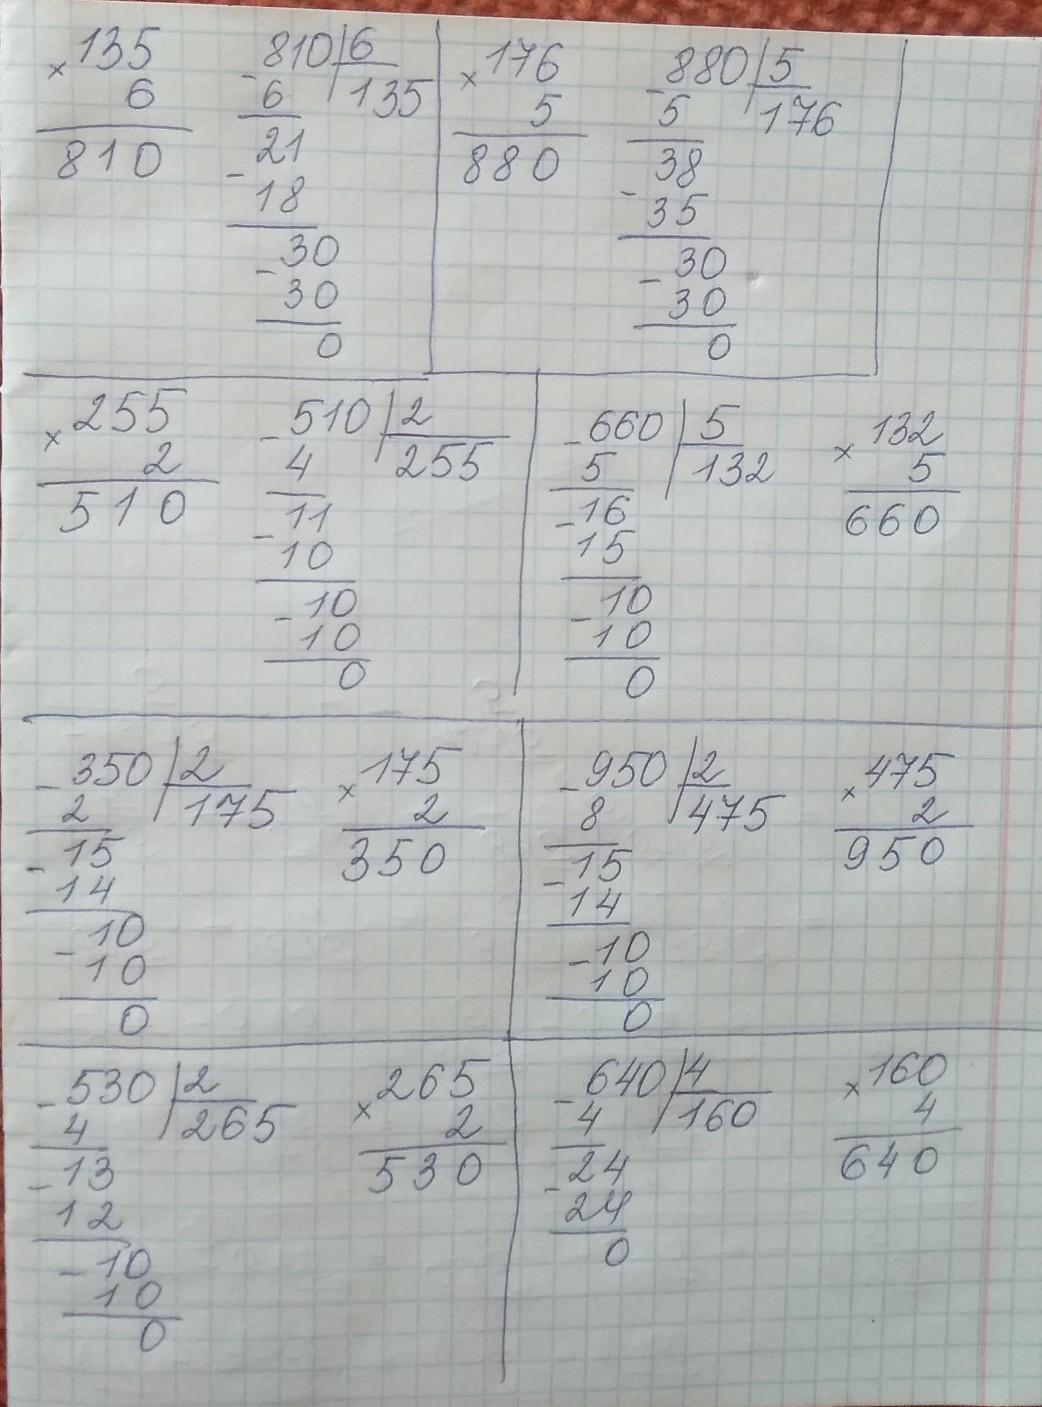 × 135
6
810
- 810 | 6
6 | 135
- 21
18
- 30
30
0
× 176
5
880
- 880 | 5
5 | 176
- 38
35
- 30
30
0
× 255
2
510
- 510 | 2
4 | 255
- 11
10
- 10
10
0
- 660 | 5
5 | 132
- 16
15
- 10
10
0
× 132
5
660
- 350 | 2
2 | 175
- 15
14
- 10
10
0
× 175
2
350
- 950 | 2
8 | 475
- 15
14
- 10
10
0
× 475
2
950
- 530 | 2
4 | 265
- 13
12
- 10
10
0
× 265
2
530
- 640 | 4
4 | 160
- 24
24
0
× 160
4
640